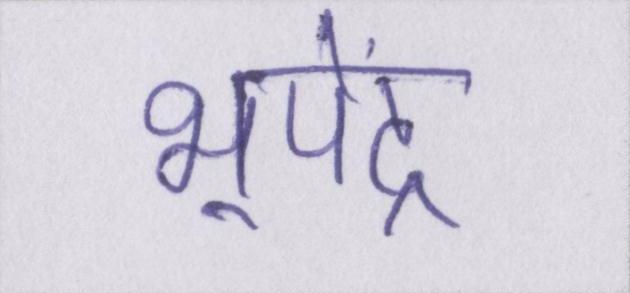 भूपेंद्र